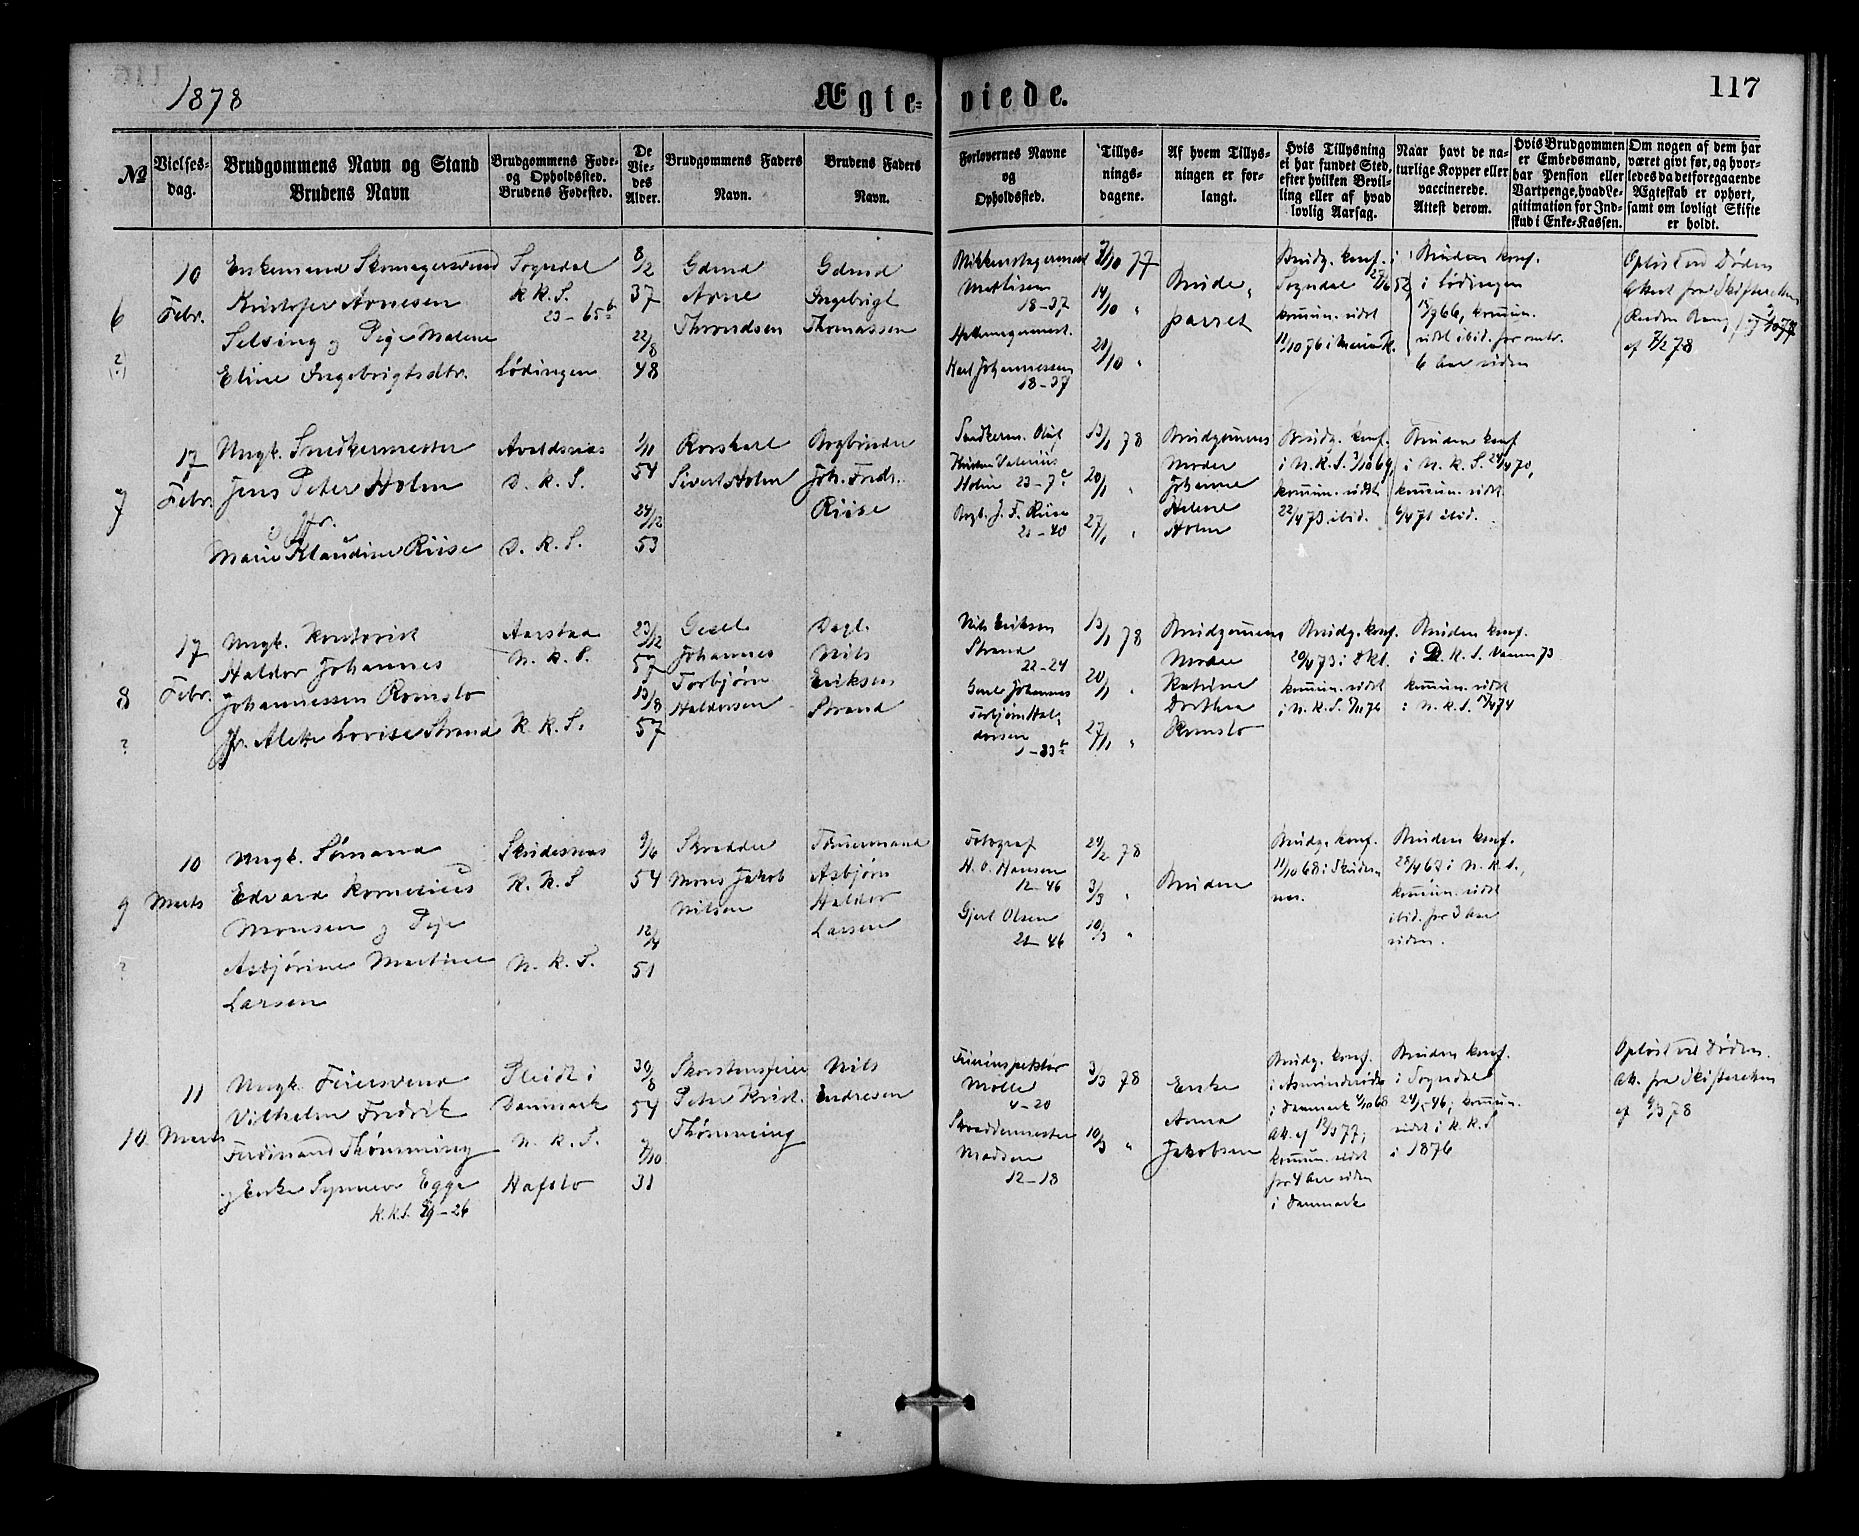 1878
Ægte-
viede.
117
No
Vielses-
dag.
Brudgommens Navn og Stand
Brudens Navn
Brudgommens Føde-
og Opholdssted.
Brudens Fødested.
De
Vie-
des
Alder.
Brudgommens Faders
Navn.
Brudens Faders
Navn.
Forlovernes Navne
og
Opholdssted.
Tillys-
nings-
dagene.
Af hvem Tillys-
ningen er for-
langt.
Hvis Tillysning
ei har fundet Sted,
efter hvilken Bevil-
ling eller af hvad
lovlig Aarsag.
Naar havt de na-
turlige Kopper eller
vaccinerede.
Attest derom.
Hvis Brudgommen
er Embedsmand,
har Pension eller
Vartpenge, hvad Le-
gitimation for Ind-
skud i Enke-Kassen.
Om nogen af dem har
været givt før, og hvor-
ledes da det foregaaende
Ægteskab er ophørt,
samt om lovligt Skifte
er holdt.
6
10
Febr.
Enkemand Skomagersvend
Kristofer Arnesen
Selsing og Pige Malene
Eline Ingebrigtsdtr.
Sogndal
K. K. S.
23 - 65 b
Lødingen
8/2
37
22/8
48
Gdmd
Arne
Throndsen
Gdmd
Ingebrigt
Thomassen
Mathisen
18-37
Karl Johannessen
18-37
7/10 77
14/10 "
21/10 "
Brude-
parret
Brudg. konf. i
Sogndal
komun. sidst
11/10 76 i Maria K.
Bruden konf.
i Lødingen
66, komun.
sidst ibid. for omtr.
6 Aar siden
Opløst ved Døden
Attest fra Skifteretten
af 7/2 78
7
17
Febr.
Ungk. Snedkermester
Jens Peter Holm
og Jfr.
Marie Klaudine Riise
Avaldsnæs
D. K. S.
D. K. S.
1/11
54
24/12
53
Rorskarl
Sivert Holm
Bogbinder
Joh. Fredr.
Riise
Snedkerm. Oluf
Kristen Valerius
Holm 23-7
Bogb. J. F. Riise
21-40
13/1 78
20/1 "
27/1 "
Brudgomens
Moder
Johanne
Helene
Holm
Brudg. konf.
i N. K. S. 3/10 69,
komun. sidst
22/4 73 ibid.
Bruden konf
i N. K. S. 24/4 70,
komun. sidst
6/4 71 ibid.
8
17
Febr.
Ungk. Kontorist
Haldor Johannes
Johannessen Romslo
Jfr. Alette Lovise Strand
Aarstad
N. K. S.
K. K. S.
23/12
57
13/8
57
Gesel
Johannes
Torbjørn
Haldorsen
Dagl.
Nils
Eriksen
Strand
Nils Eriksen
Strand
22-24
Gesel Johannes
Torbjørn Hal-
dorsen
1-33
13/1 78
20/1 "
27/1 "
Brudgomens
Moder
Katrine
Dorthea
Romslo
Brudg. konf.
20/4 73 i Dkl.
komun. sidst
i N. K. S. 76
Bruden konf.
i D. K. S. 73
komun. sidst
i N. K. S. 74
9
10
Marts
Ungk. Sømand
Edvard Kornelius
Monsen og Pige
Asbjørine Martine
Larsen
Skudesnæs
K. K. S
N. K. S.
9/6
54
12/4
51
Skrædder
Mons Jakob
Nilsen
Tømmermand
Asbjørn
Haldor
Larsen
Fotograf
H. O. Hansen
12-46
Gjert Olsen
21-46
24/2 78
3/3 "
10/3 "
Bruden
Brudg. konf.
11/10 68 i Skudes-
næs.
Bruden konf.
28/4 67 i N. K. S.,
komun. sidst
ibid. for 3 Aar
siden.
10
11
Marts
Ungk. Feiersvend
Vilhelm Fredrik
Ferdinand Thømming
og Enke Synneve Egge
K. K. S. 29-26
Danmark
N. K. S.
Hafslo
30/8
54
7/10
31
Skorstensfeier
Peter Krist.
Thømming
Nils
Endresen
Feierinspektør
Møller
4-20
Skræddermester
Madsen
12-18
3/3 78
10/3 "
Enke
Anna
Jakobsen
Brudg. konf.
i Danmark 4/10 68
Att. af 12/3 77;
komun. sidst
for 4 Aar siden
i Danmark
Bruden konf.
i Sogndal
46; komun.
sidst i K. K. S
i 1876
Opløst ved Døden.
Att. fra Skifteretten
af 9/3 78